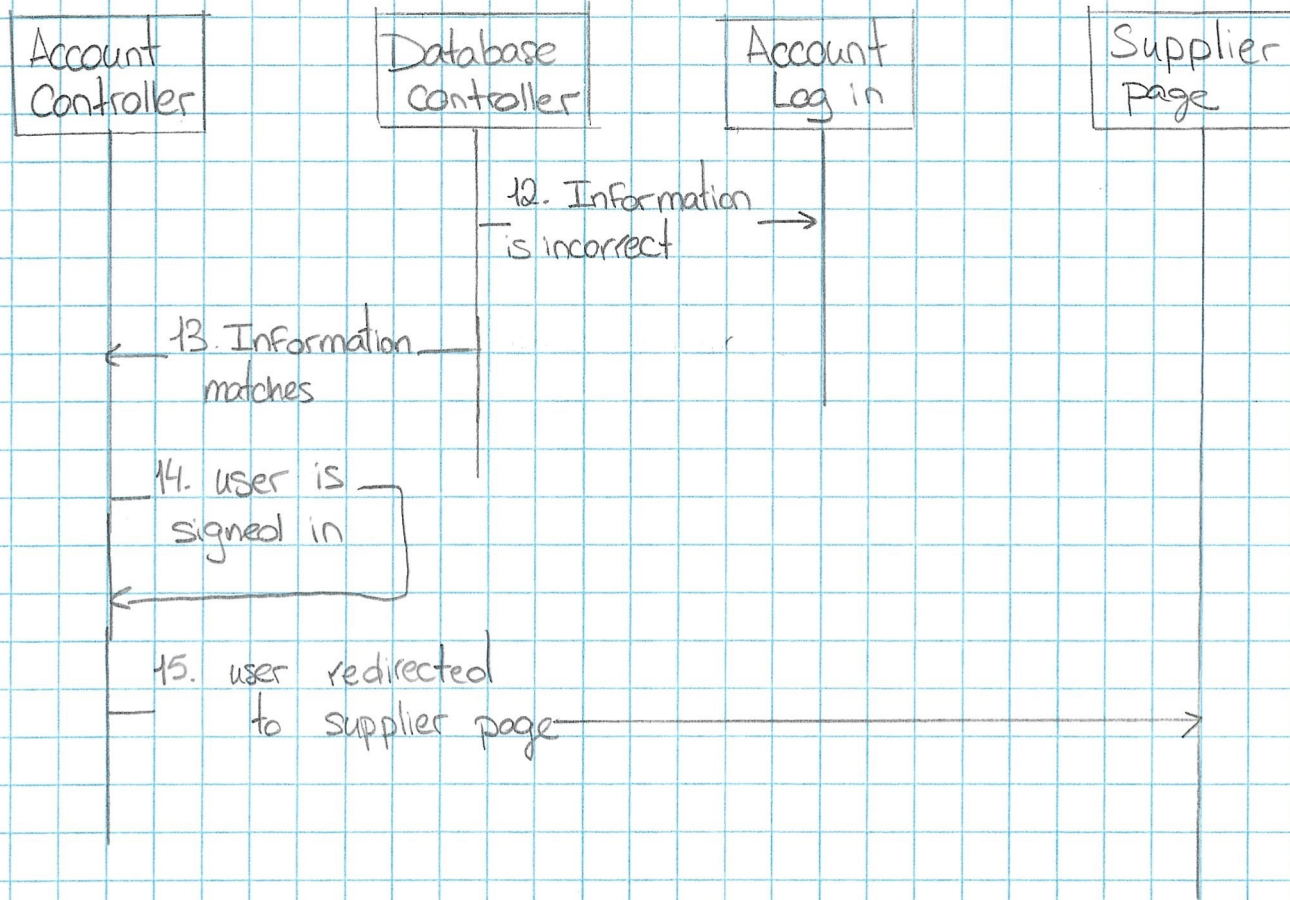 Account
Controller
Database
controller
Account
Log in
Supplier
page
12. Information
is incorrect
13. Information
matches
14. user is
signed in
15. user redirected
to supplier page